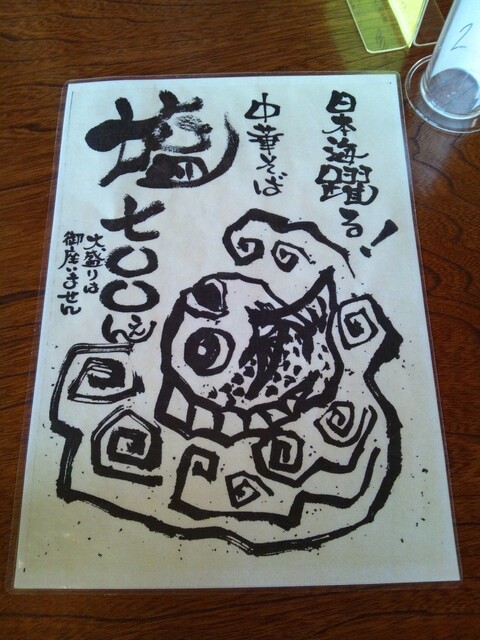 日本海躍る!
中華そば
塩
七〇〇えん
大盛りは
御座いません
2